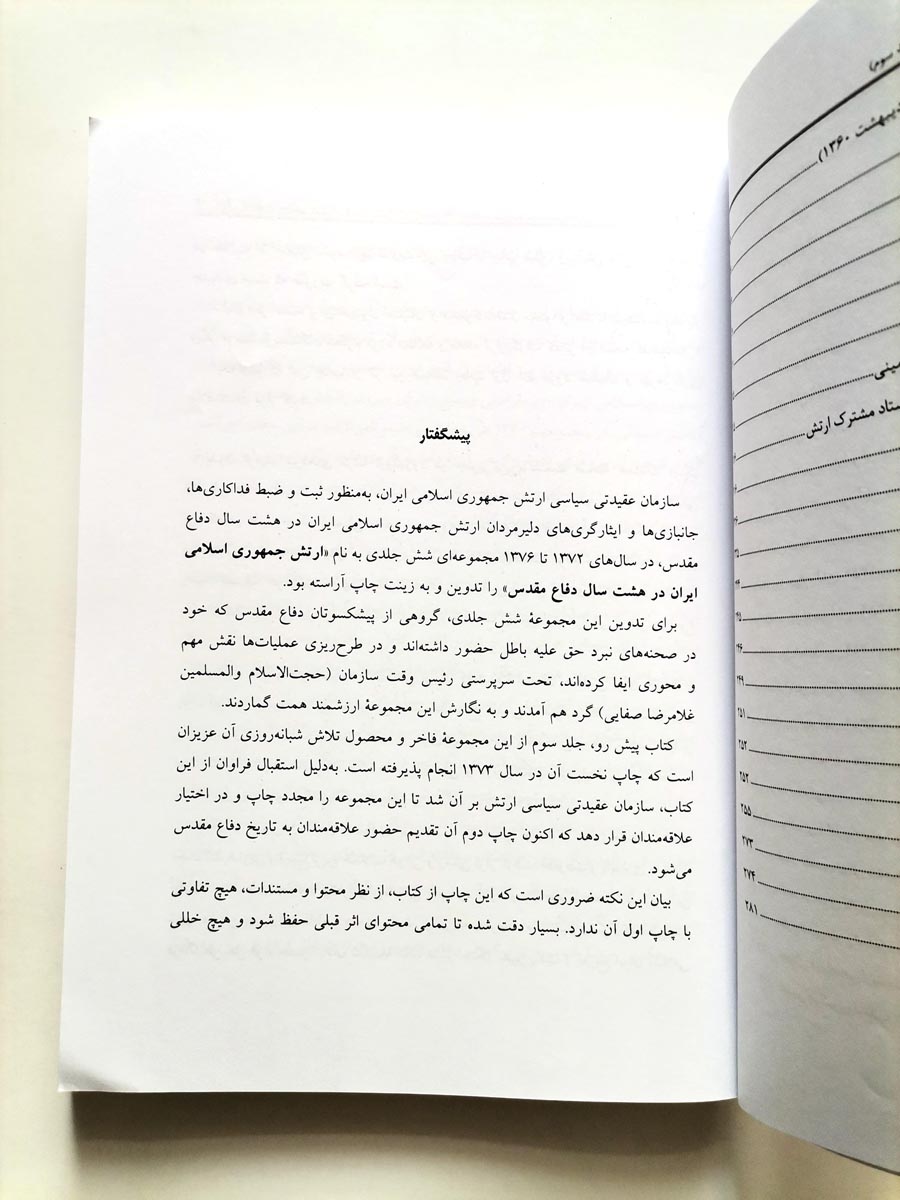 پیشگفتار
سازمان عقیدتی سیاسی ارتش جمهوری اسلامی ایران، به‌منظور ثبت و ضبط فداکاری‌ها،
جانبازی‌ها و ایثارگری‌های دلیرمردان ارتش جمهوری اسلامی ایران در هشت سال دفاع
مقدس، در سال‌های ۱۳۷۲ تا ۱۳۷۶ مجموعه‌ای شش جلدی به نام «ارتش جمهوری اسلامی
ایران در هشت سال دفاع مقدس» را تدوین و به زینت چاپ آراسته بود.
برای تدوین این مجموعهٔ شش جلدی، گروهی از پیشکسوتان دفاع مقدس که خود
در صحنه‌های نبرد حق علیه باطل حضور داشته‌اند و در طرح‌ریزی عملیات‌ها نقش مهم
و محوری ایفا کرده‌اند، تحت سرپرستی رئیس وقت سازمان (حجت‌الاسلام والمسلمین
غلامرضا صفایی) گرد هم آمدند و به نگارش این مجموعهٔ ارزشمند همت گماردند.
کتاب پیش رو، جلد سوم از این مجموعهٔ فاخر و محصول تلاش شبانه‌روزی آن عزیزان
است که چاپ نخست آن در سال ۱۳۷۳ انجام پذیرفته است. به‌دلیل استقبال فراوان از این
کتاب، سازمان عقیدتی سیاسی ارتش بر آن شد تا این مجموعه را مجدد چاپ و در اختیار
علاقه‌مندان قرار دهد که اکنون چاپ دوم آن تقدیم حضور علاقه‌مندان به تاریخ دفاع مقدس
می‌شود.
بیان این نکته ضروری است که این چاپ از کتاب، از نظر محتوا و مستندات، هیچ تفاوتی
با چاپ اول آن ندارد. بسیار دقت شده تا تمامی محتوای اثر قبلی حفظ شود و هیچ خللی
سوم)
۱۳۶۰)
ستاد مشترک ارتش
۲۴۹
۲۵۱
۲۵۲
۲۵۲
۲۵۵
۲۷۳
۲۷۴
۲۸۱